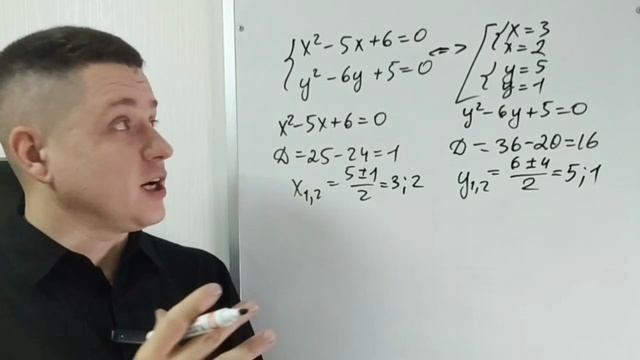 { x² - 5x + 6 = 0
{ y² - 6y + 5 = 0
<=> [ { x = 3
x = 2
{ y = 5
y = 1
x² - 5x + 6 = 0
D = 25 - 24 = 1
x₁,₂ = (5 ± 1)/2 = 3; 2
y² - 6y + 5 = 0
D = 36 - 20 = 16
y₁,₂ = (6 ± 4)/2 = 5; 1